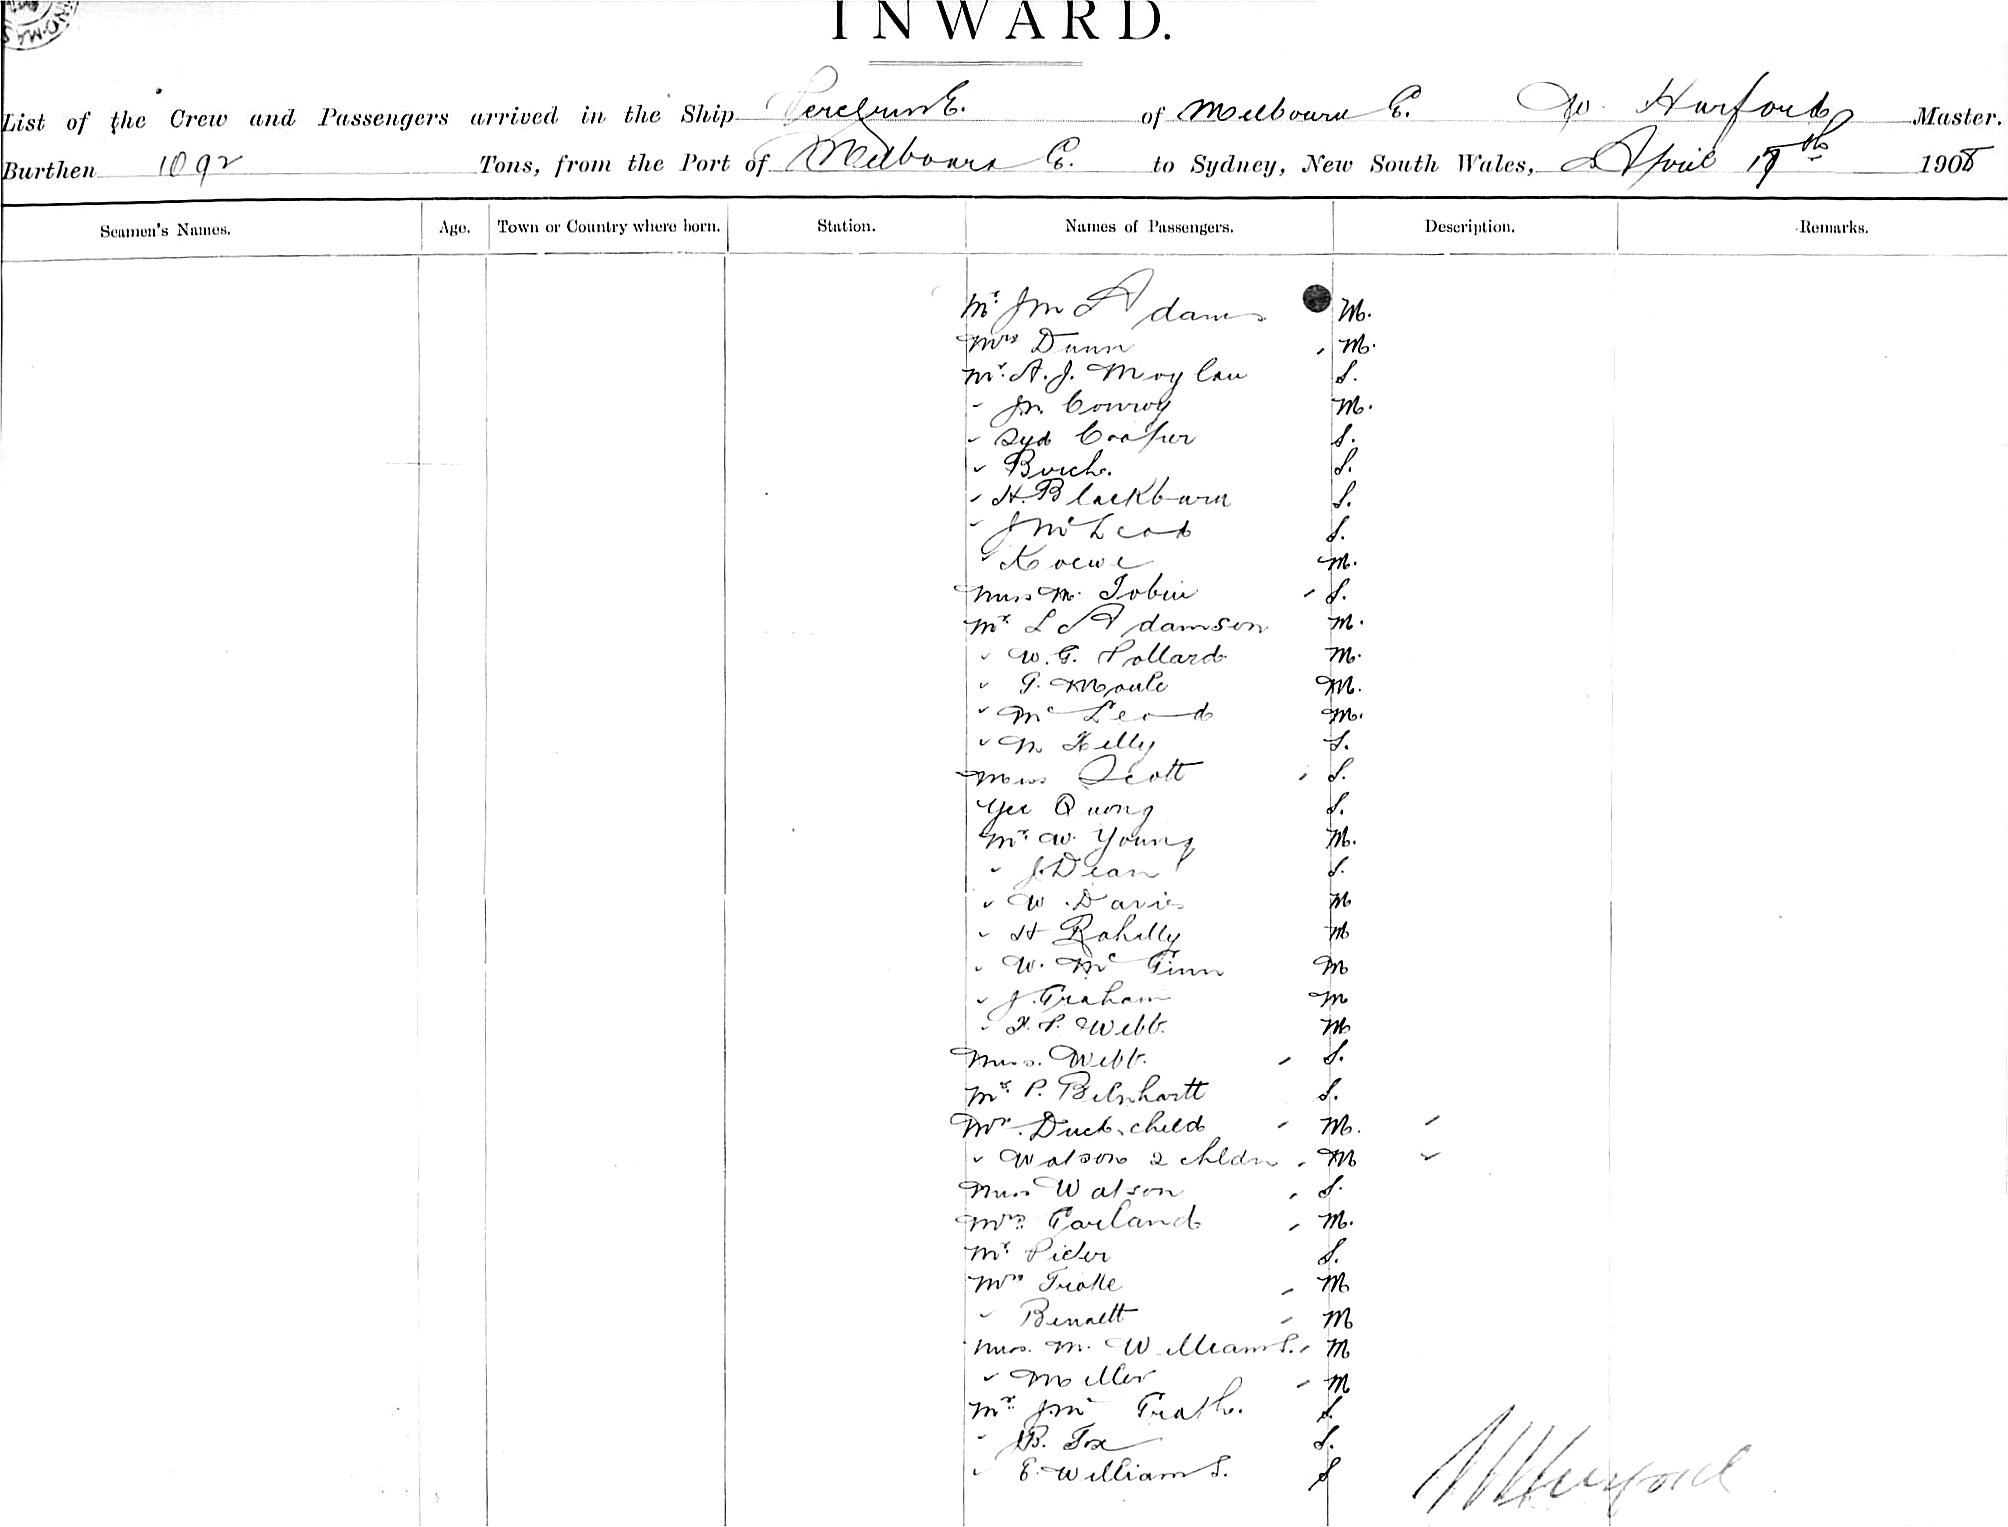 INWARD.
List of the Crew and Passengers arrived in the Ship of Melbourne W. Hurford Master.
Burthen 1092 Tons, from the Port of Melbourne to Sydney, New South Wales, April 17th 1908
Seamen's Names. Age. Town or Country where born. Station. Names of Passengers. Description. Remarks.
Mr Jm Adams M.
Mrs Dunn M.
Mr. A. J. Moylan S.
" Jn. Conroy M.
" Syd Cooper S.
" Birch. S.
" H. Blackburn S.
" J McLeod S.
" M.
Miss M. Tobin S.
Mr L Adamson M.
" W. G. Pollard M.
" G. Moule M.
" McLeod M.
" M Kelly S.
Miss Scott S.
Yee Quong S.
Mr. W. Young M.
" J. Dean S.
" W. Davis M
" H Rahilly M
" W. Mc Ginn M
" J. Graham M
" F. P. Webb. M
Miss. Webb. S.
Mr. P. S.
Mrs. Duck. child M.
" Watson 2 childn M
Miss Watson S.
Mrs. Garland M.
Mr. S.
Mrs M
" Bennett M
Miss. M. Williams. M
" Miller M
Mr. J Mc Grath. S.
" B. Fox S.
" E. Williams. S
W Hurford